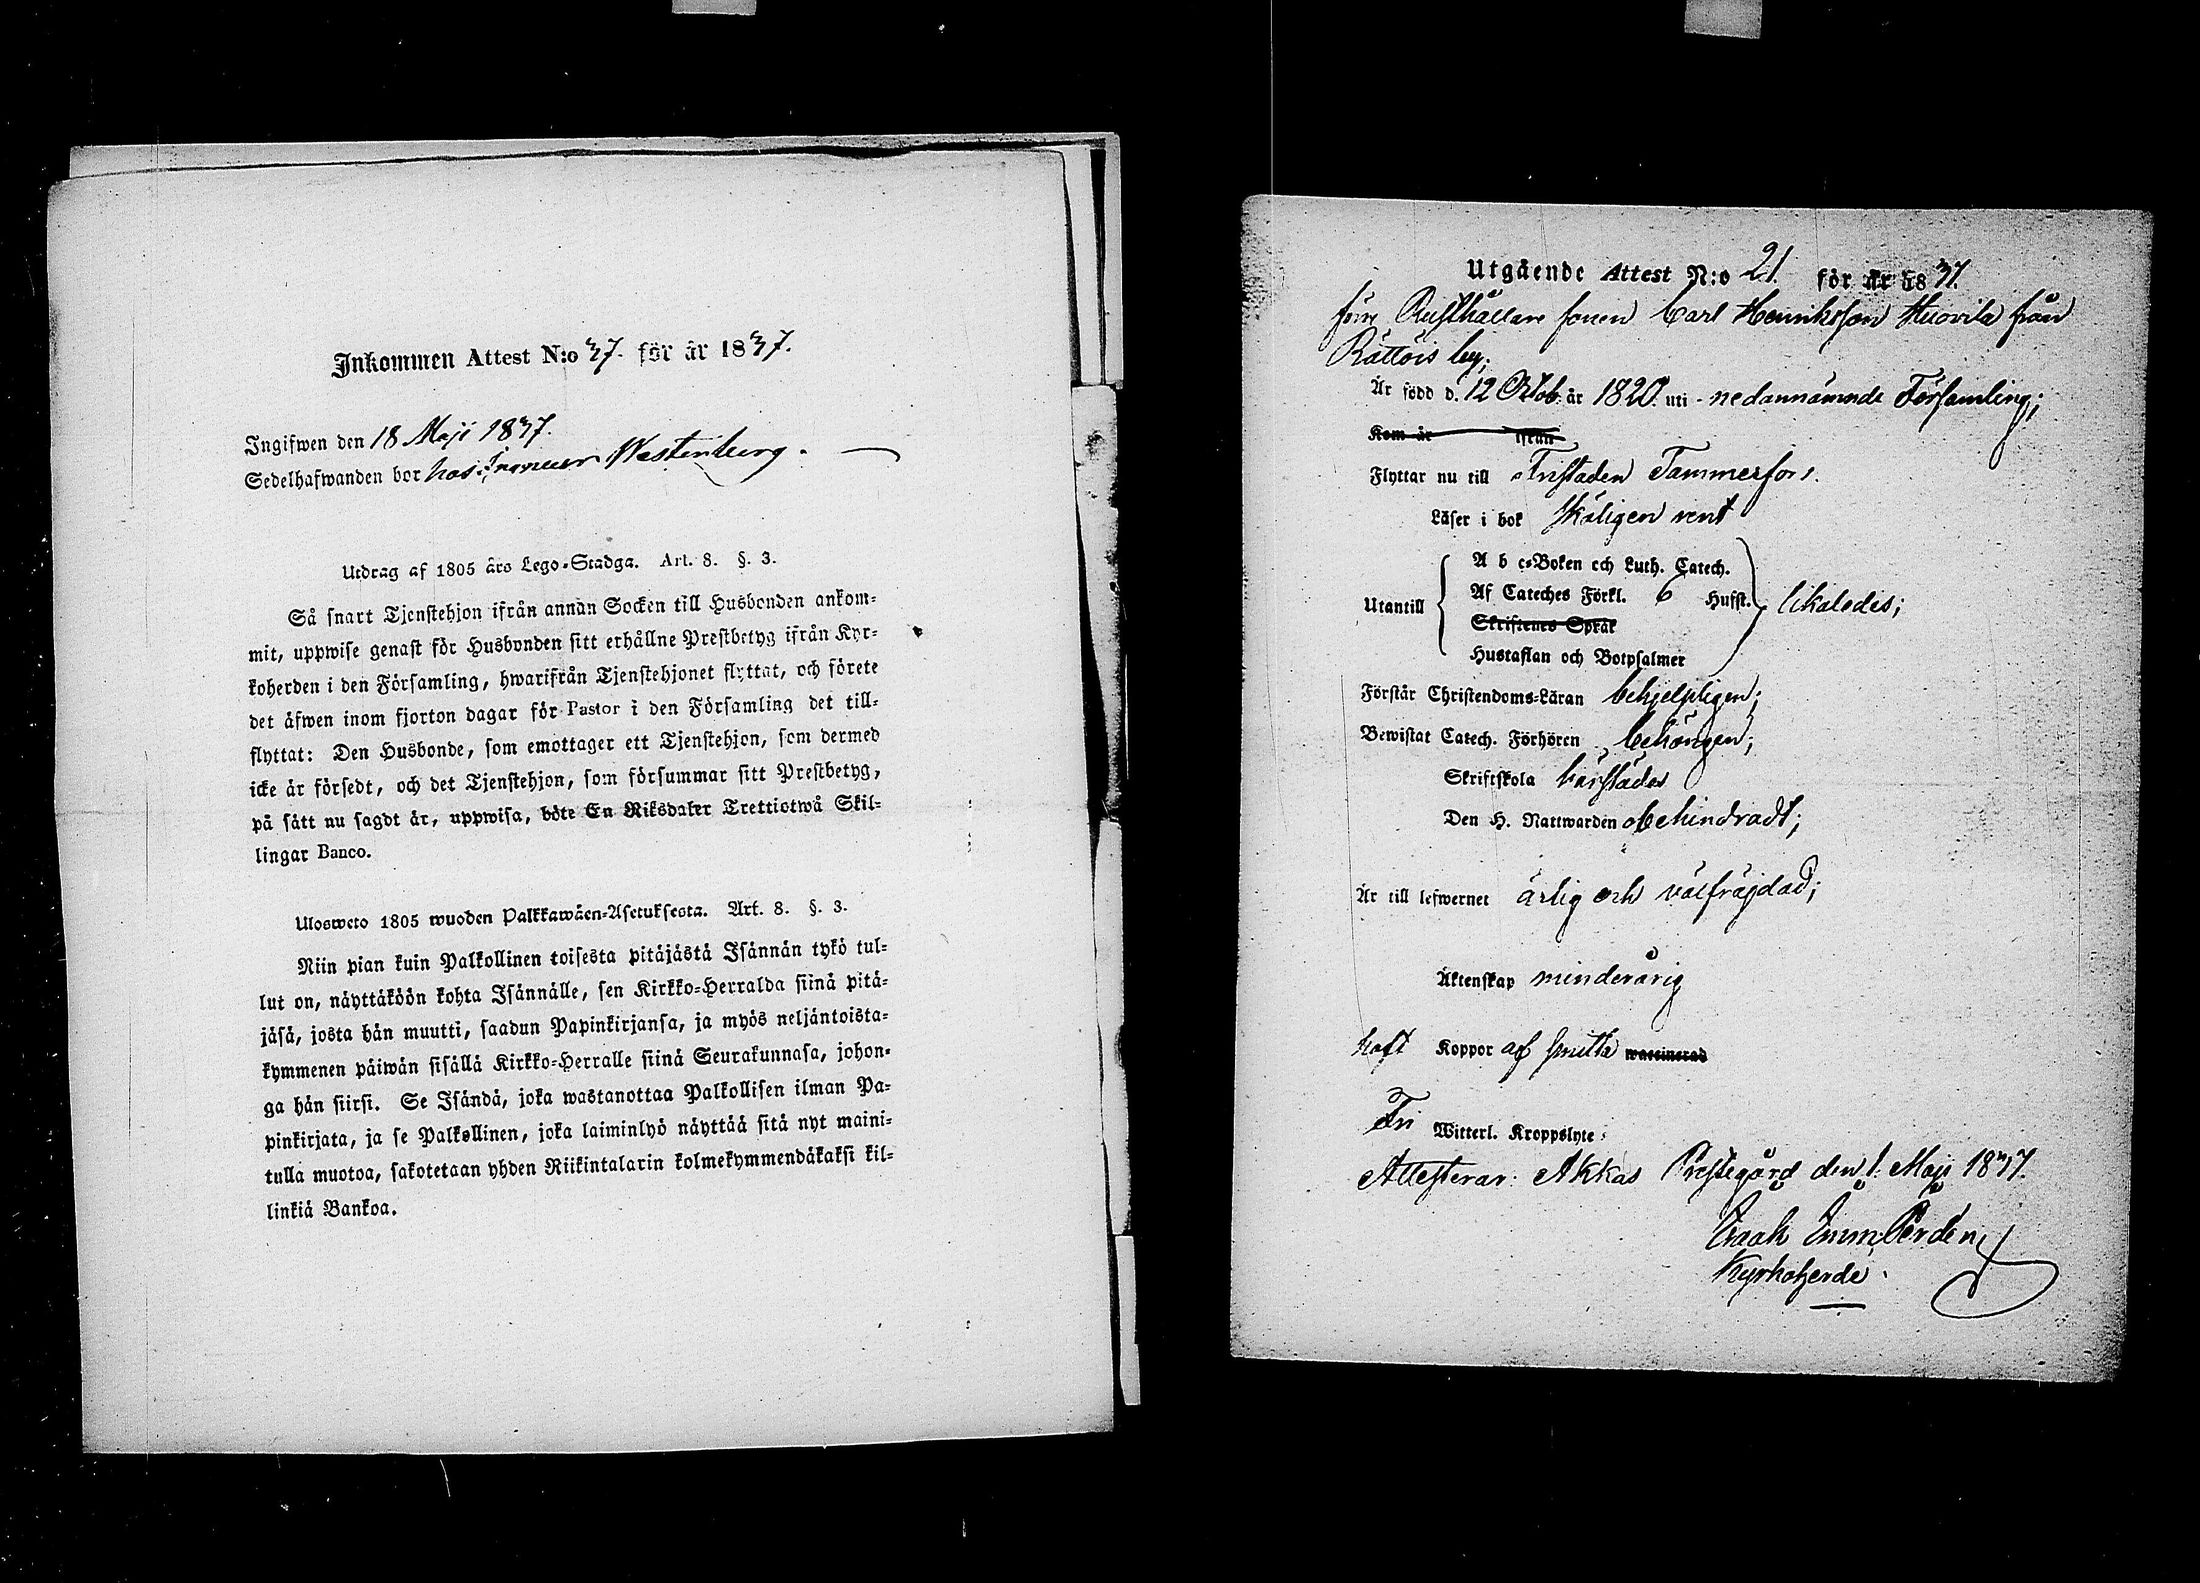 Inkommen Attest N:o 37. för år 1837.
Ingifwen den 18 Maji 1837.
Sedelhafwanden bor hos Westerberg.
Utdrag af 1805 års Lego-Stadga. Art. 8. §. 3.
Så snart Tjenstehjon ifrån annan Socken till Husbonden ankom-
mit, uppwise genast för Husbonden sitt erhållne Prestbetyg ifrån Kyr-
koherden i den Församling, hwarifrån Tjenstehjonet flyttat, och förete
det äfwen inom fjorton dagar för Pastor i den Församling det till-
flyttat: Den Husbonde, som emottager ett Tjenstehjon, som dermed
icke är försedt, och det Tjenstehjon, som försummar sitt Prestbetyg,
på sätt nu sagdt är, uppwisa, böte En Riksdaler Trettiotwå Skil-
lingar Banco.
Ulosweto 1805 wuoden Palkkawäen-Asetuksesta. Art. 8. §. 3.
Niin pian kuin Palkollinen toisesta pitäjästä Isännän tykö tul-
lut on, näyttäköön kohta Isännälle, sen Kirkko-Herralda siinä pitä-
jäsä, josta hän muutti, saadun Papinkirjansa, ja myös neljäntoista-
kymmenen päiwän sisällä Kirkko-Herralle siinä Seurakunnasa, johon-
ga hän siirsi. Se Isändä, joka wastanottaa Palkollisen ilman Pa-
pinkirjata, ja se Palkollinen, joka laiminlyö näyttää sitä nyt maini-
tulla muotoa, sakotetaan yhden Riikintalarin kolmekymmendäkaksi kil-
linkiä Bankoa.
Utgående Attest N:o 21. för år 1837.
förre Rusthållare sonen Carl Henriksson Huovila från
Rättöis by;
Är född d. 12 Oktob. år 1820. uti nedannämnde Församling;
Kom år ifrån
Flyttar nu till Fristaden Tammerfors.
Läser i bok skäligen rent
A b c-Boken och Luth. Catech.
Utantill Af Cateches Förkl. 6 Hufst. likaledes;
Skriftenes Språk
Hustaflan och Botpsalmer
Förstår Christendoms-Läran behjelpligen;
Bewistat Catech. Förhören behörigen;
Skriftskola börstädes
Den H. Nattwarden obehindradt;
Är till lefwernet ärlig och välfrägdad;
Äktenskap minderårig
haft Koppor af smitta waccinerad
Fri Witterl. Kroppslyte
Attesterar: Akkas Prestegård den 1. Maji 1837.
Isaak Imm. Perdén
Kyrkoherde.